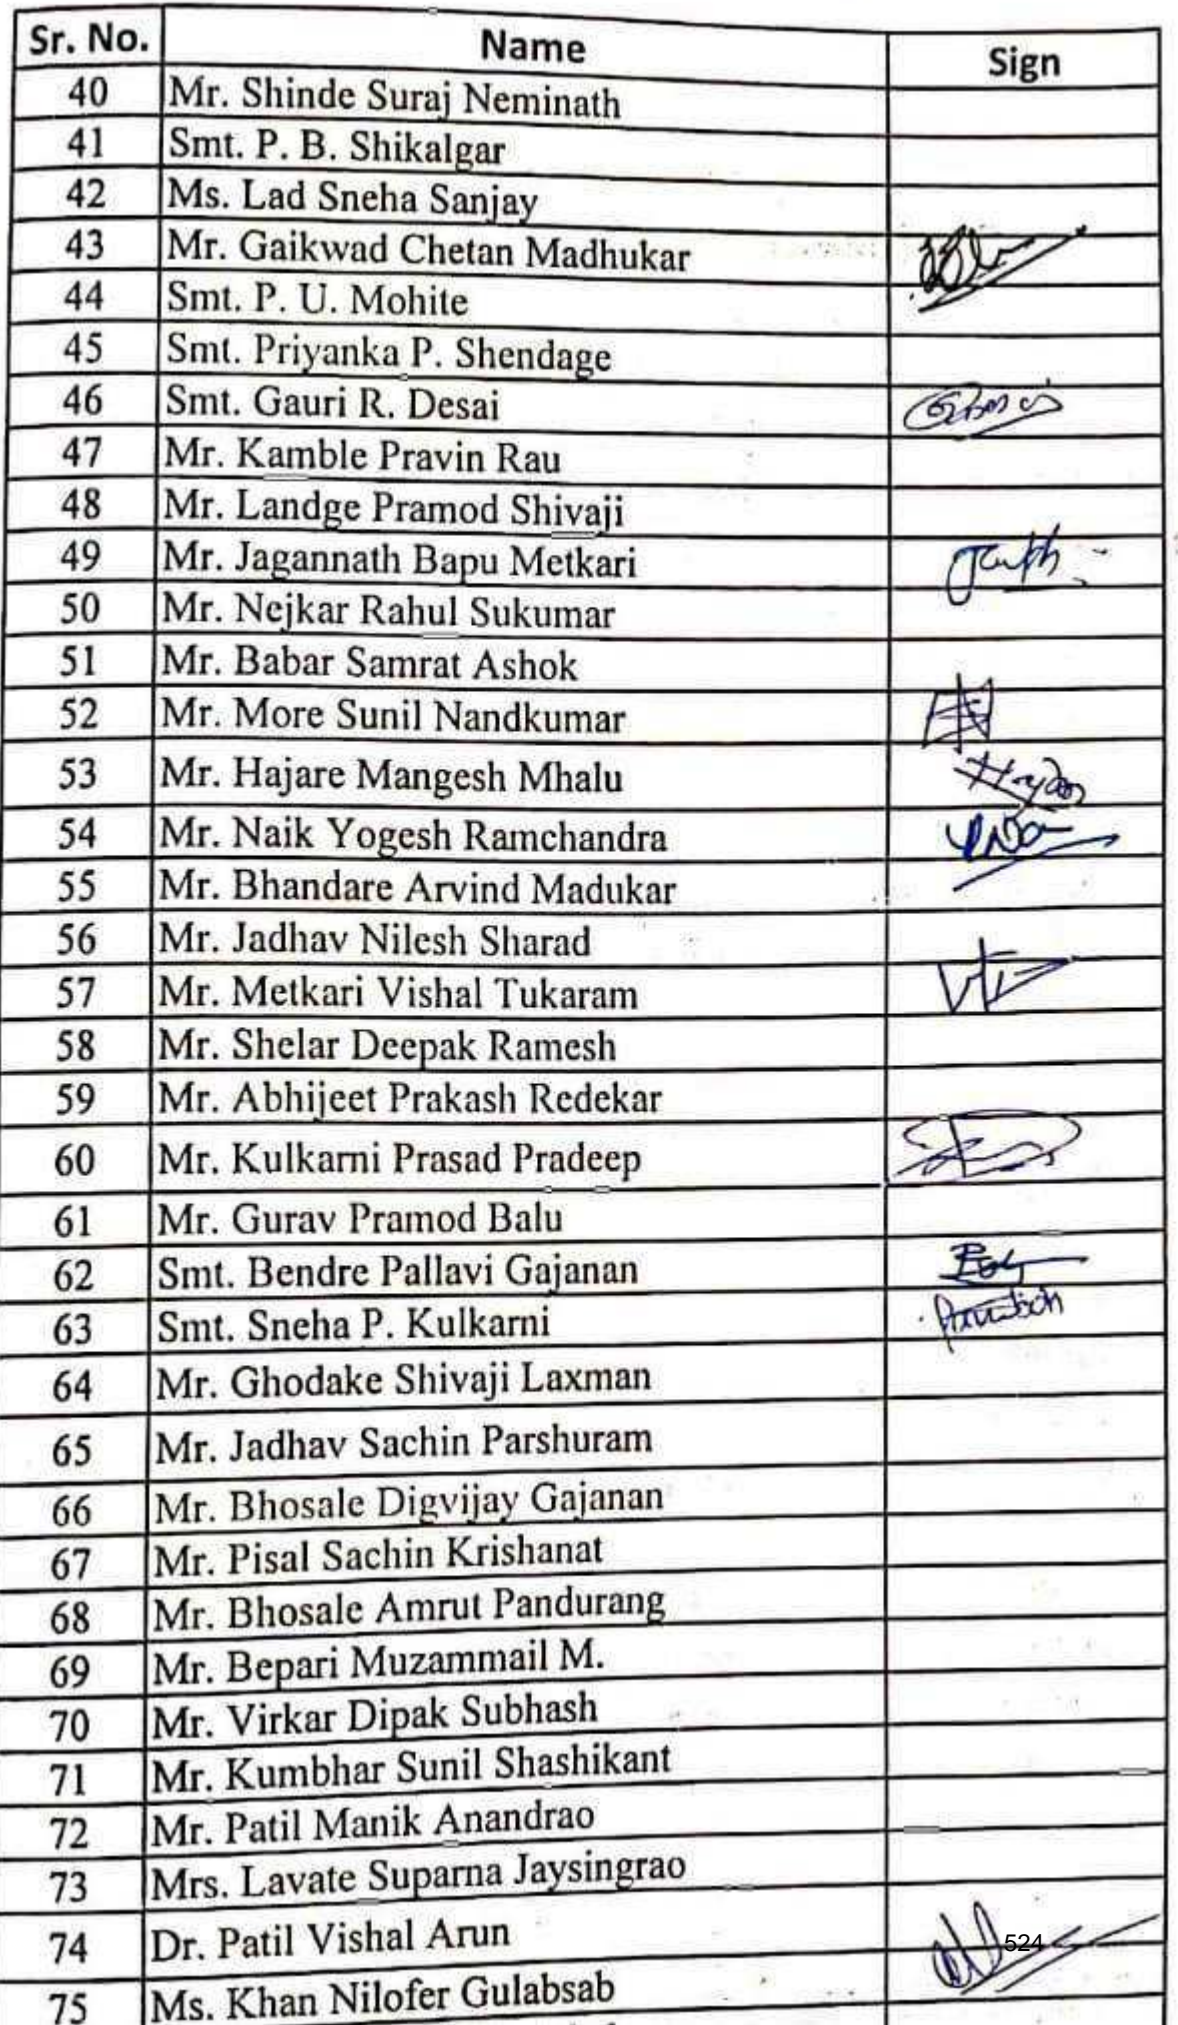 Sr. No. Name Sign
40 Mr. Shinde Suraj Neminath
41 Smt. P. B. Shikalgar
42 Ms. Lad Sneha Sanjay
43 Mr. Gaikwad Chetan Madhukar
44 Smt. P. U. Mohite
45 Smt. Priyanka P. Shendage
46 Smt. Gauri R. Desai
47 Mr. Kamble Pravin Rau
48 Mr. Landge Pramod Shivaji
49 Mr. Jagannath Bapu Metkari
50 Mr. Nejkar Rahul Sukumar
51 Mr. Babar Samrat Ashok
52 Mr. More Sunil Nandkumar
53 Mr. Hajare Mangesh Mhalu
54 Mr. Naik Yogesh Ramchandra
55 Mr. Bhandare Arvind Madukar
56 Mr. Jadhav Nilesh Sharad
57 Mr. Metkari Vishal Tukaram
58 Mr. Shelar Deepak Ramesh
59 Mr. Abhijeet Prakash Redekar
60 Mr. Kulkarni Prasad Pradeep
61 Mr. Gurav Pramod Balu
62 Smt. Bendre Pallavi Gajanan
63 Smt. Sneha P. Kulkarni
64 Mr. Ghodake Shivaji Laxman
65 Mr. Jadhav Sachin Parshuram
66 Mr. Bhosale Digvijay Gajanan
67 Mr. Pisal Sachin Krishanat
68 Mr. Bhosale Amrut Pandurang
69 Mr. Bepari Muzammail M.
70 Mr. Virkar Dipak Subhash
71 Mr. Kumbhar Sunil Shashikant
72 Mr. Patil Manik Anandrao
73 Mrs. Lavate Suparna Jaysingrao
74 Dr. Patil Vishal Arun 524
75 Ms. Khan Nilofer Gulabsab